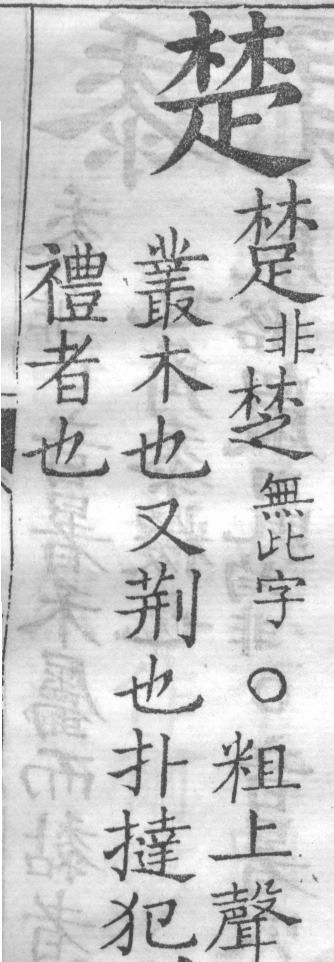 楚
𣓤非椘無此字○粗上聲
叢木也又荆也扑撻犯
禮者也